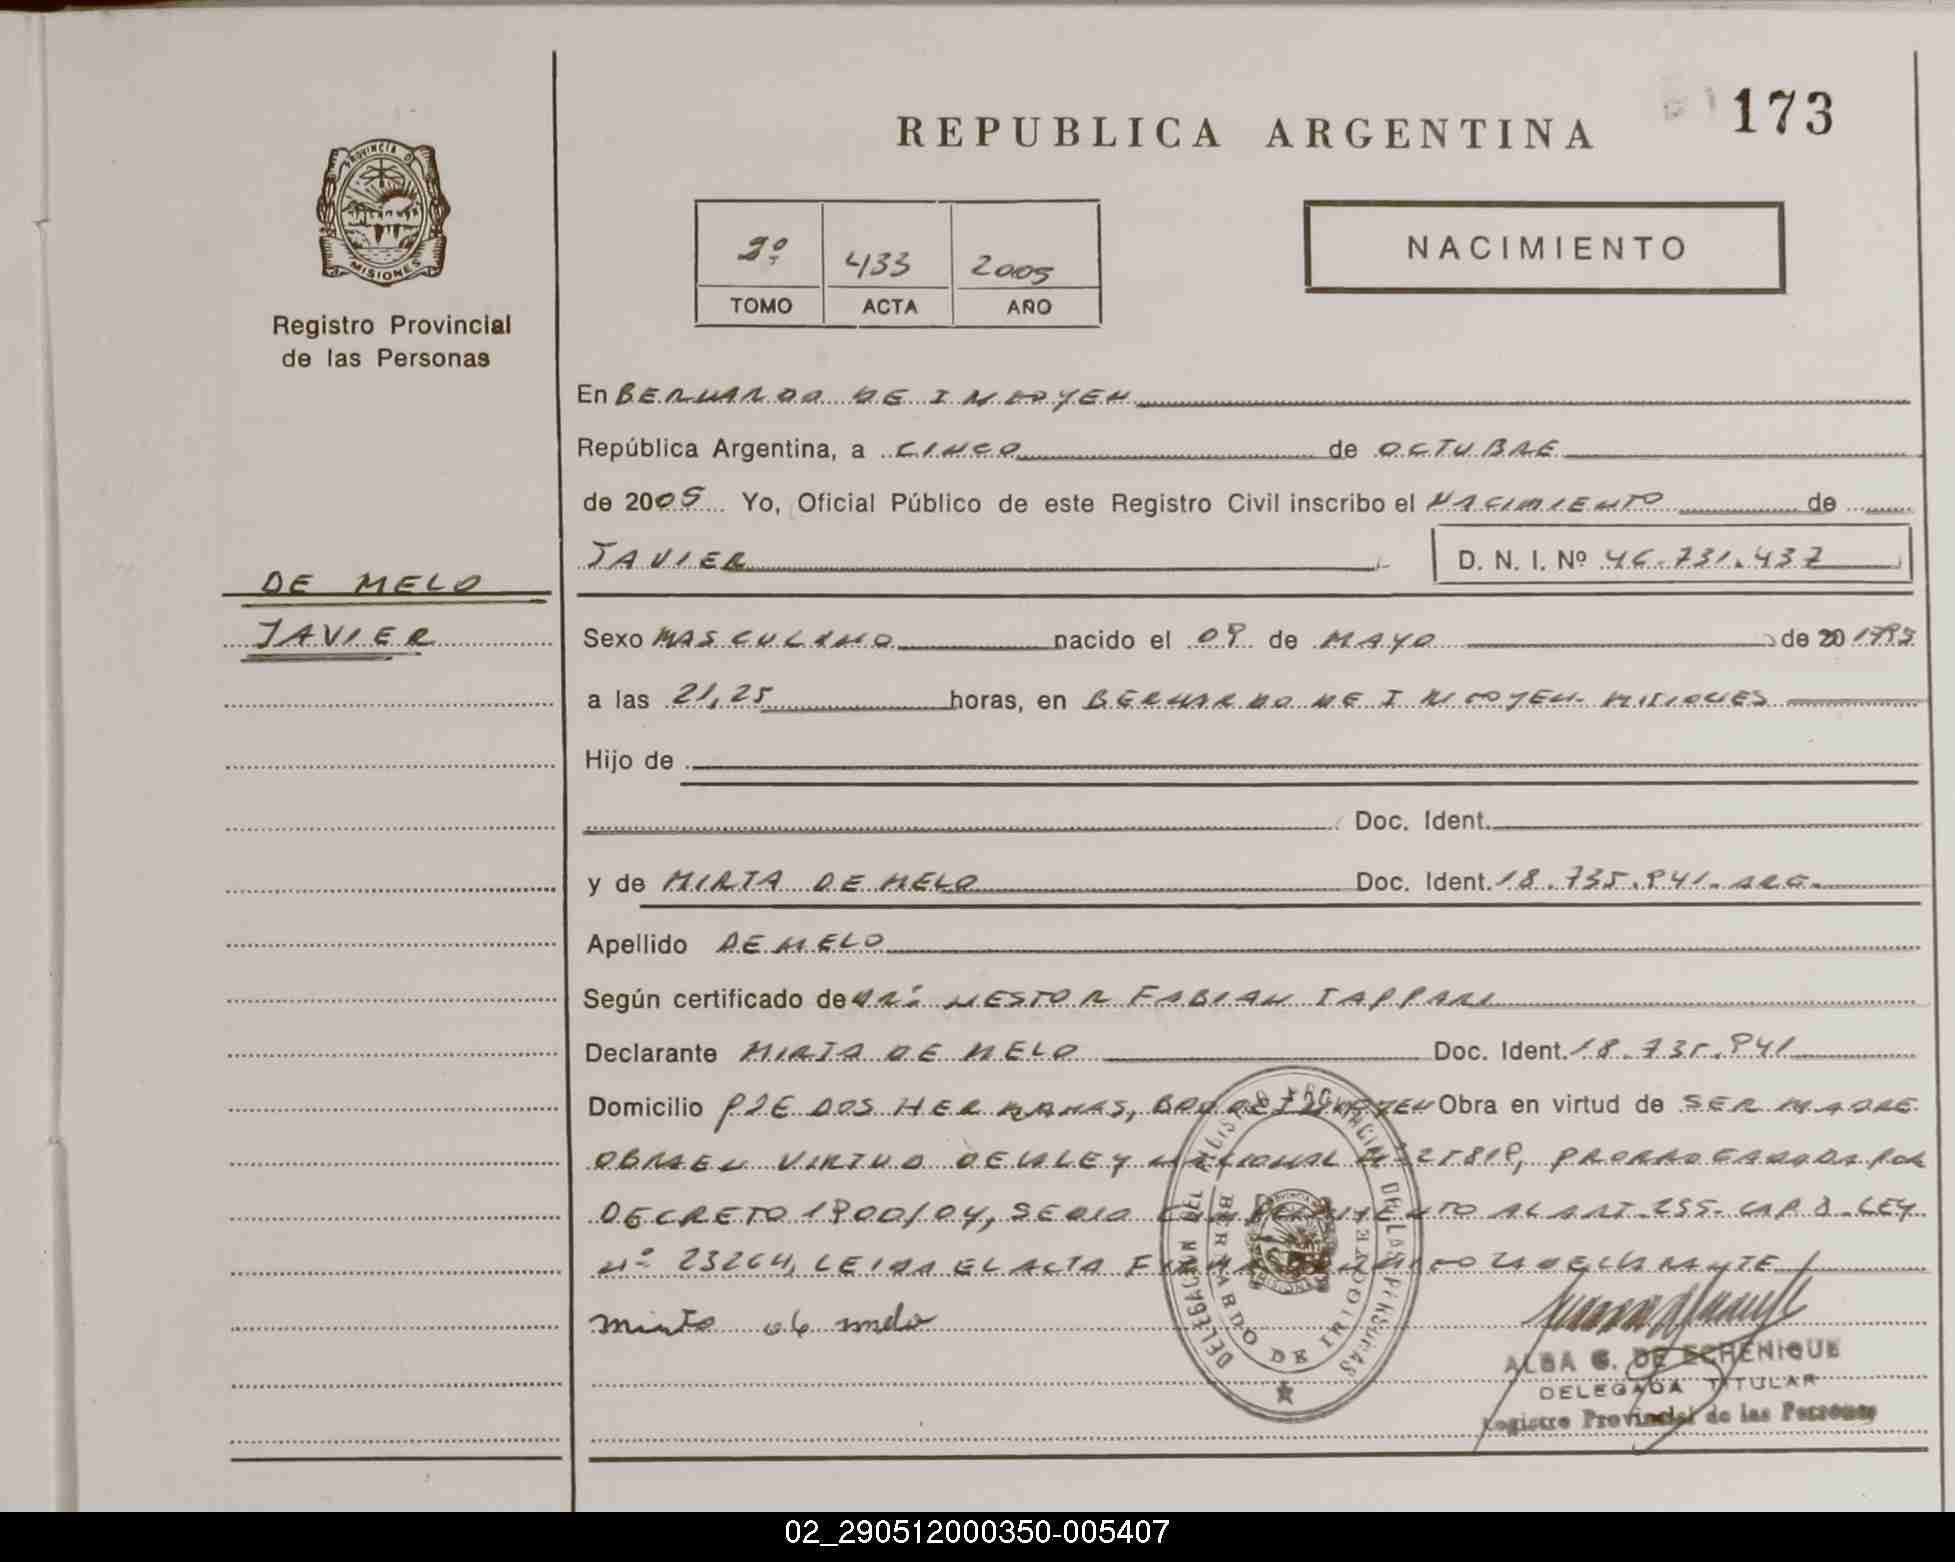 173
REPUBLICA ARGENTINA
PROVINCIA DE
MISIONES
Registro Provincial
de las Personas
2º 433 2005
TOMO ACTA AÑO
NACIMIENTO
En BERNARDO DE IRIGOYEN
República Argentina, a CINCO de OCTUBRE
de 2005 Yo, Oficial Público de este Registro Civil inscribo el NACIMIENTO de
JAVIER D. N. I. Nº 46.731.437
DE MELO
JAVIER
Sexo MASCULINO nacido el 09 de MAYO de 20
a las 21,25 horas, en BERNARDO DE IRIGOYEN- MISIONES
Hijo de
Doc. Ident.
y de MIRTA DE MELO Doc. Ident. 18.735.941- ARG.
Apellido DE MELO
Según certificado de DR. NESTOR FABIAN TAPPARI
Declarante MIRTA DE MELO Doc. Ident. 18.735.941
Domicilio PJE DOS HERMANAS, BDO DE IRIGOYEN Obra en virtud de SER MADRE
OBRA EN VIRTUD DE LA LEY NACIONAL Nº 25819, PRORROGADA POR
DECRETO 1900/04, SE DIO CUMPLIMIENTO AL ART. 255- CAP LEY
Nº 23264, LEIDA EL ACTA FIRMA CONMIGO LA DECLARANTE
Mirta de melo
DELEGACION DEL REGISTRO PROVINCIAL DE LAS PERSONAS
BERNARDO DE IRIGOYEN
ALBA G. DE ECHENIQUE
DELEGADA TITULAR
Registro Provincial de las Personas
02_290512000350-005407